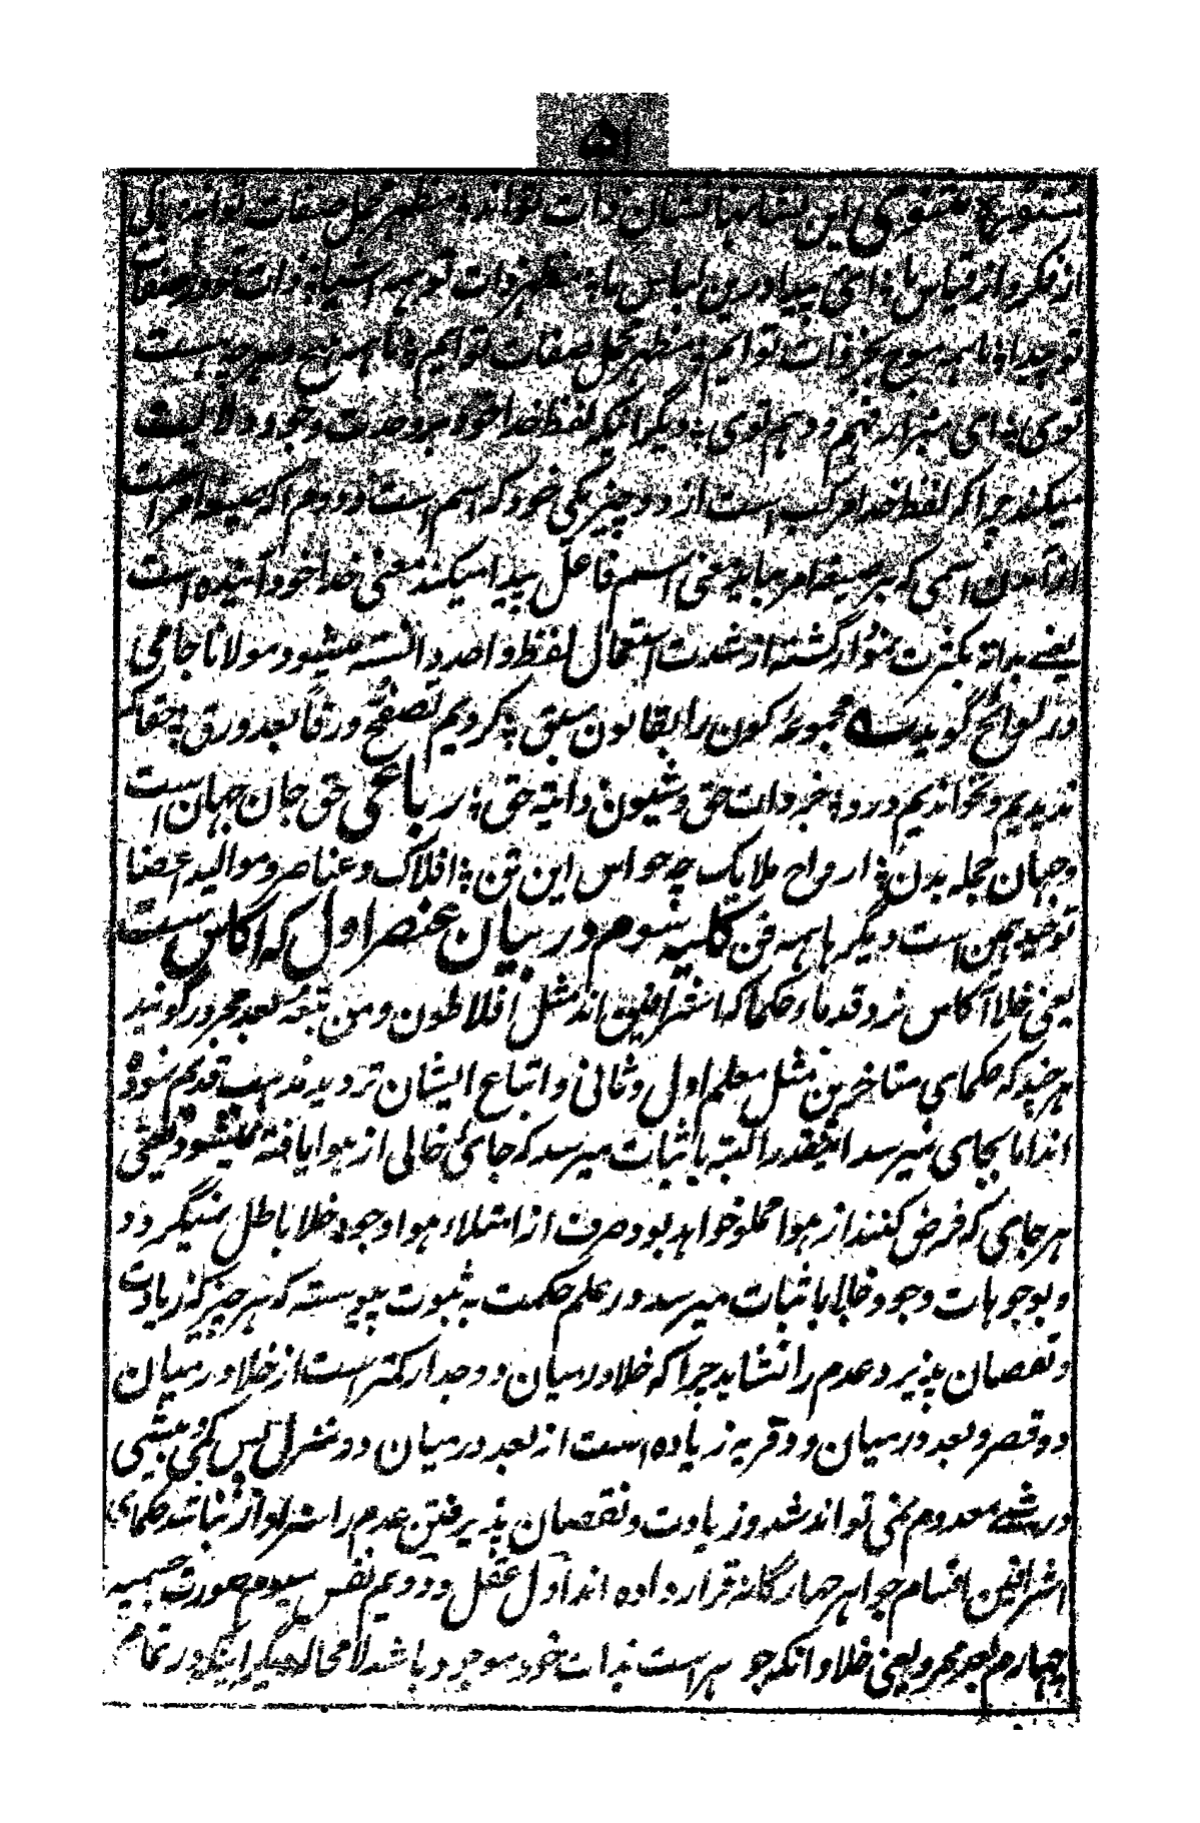 ۵۱
مثنوی این نشانها نشان ذات تواند ؛ مظهر کل صفات تواند
از فکر و از قیاس ما ؛ ای پیدا درین لباس ما ؛ مظهر ذات تو همه اشیا ؛ ذات تو در صفات
تو پیدا ؛ ما همه موج بحر ذات توایم ؛ مظهر کل صفات توایم ؛ ما همه هیچ هرچه هست
توی ؛ ای مبرا ز فهم و وهم توی ؛ دیگر آنکه لفظ خدا خود بر وحدت وجود دلالت
میکند چرا که لفظ خدا مرکب است از دو چیز یکی خود که اسم است و دوم آکه صیغه امر است
از آمدن و اسمی که بر صیغه امر بیاید معنی اسم فاعل پیدا میکند معنی خدا خود آینده است
یعنی بذاته بکثرت گشته از شدت استعمال لفظ واحد دانسته میشود مولانا جامی
در لوائح گوید مجموعه کون را بقانون سبق ؛ کردیم تصفح ورقا بعد ورق ؛ حقا که
ندیدیم و نخواندیم درو ؛ جز ذات حق و شیون ذاتیه حق ؛ رباعی حق جان جهان است
و جهان جمله بدن ؛ ارواح ملایک چو حواس این تن ؛ افلاک و عناصر و موالید اعضا
توحید همین است دیگرها همه فن کلیه سوم در بیان عنصر اول که آکاس ست
یعنی خلا آکاس نزد قدماء حکما که اشراقیین اند مثل افلاطون و من تبعه بعد مجرد گویند
هر چند که حکمای متاخرین مثل معلم اول و ثانی و اتباع ایشان تردید مذهب قدیم نموده
اند اما بجای نمیرسد اینقدر البته باثبات میرسد که جائی خالی از هوا یافته نمیشود یعنی
هر جای که فرض کنند از هوا مملو خواهد بود صرف از امتلاء هوا وجود خلا باطل نمیگردد
و بوجوهات وجود خلا باثبات میرسد در علم حکمت به ثبوت پیوسته که هر چیز که زیادت
و نقصان پذیرد عدم را نشاید چرا که خلا در میان دو جدار کمتر است از خلا در میان
دو قصر و بعد در میان دو قریه زیاده است از بعد در میان دو منزل پس کمی بیشی
در شے معدوم نمی تواند شد و زیادت و نقصان پذیرفتن عدم را سزاوار نباشد حکمای
اشراقین اقسام جواهر چهارگانه قرار داده اند اول عقل و دویم نفس سیوم صورت جسمیه
چهارم بعد مجرد یعنی خلا و آنکه جوهر است بذات خود موجود باشد لا محاله دیگر اینکه در تمام